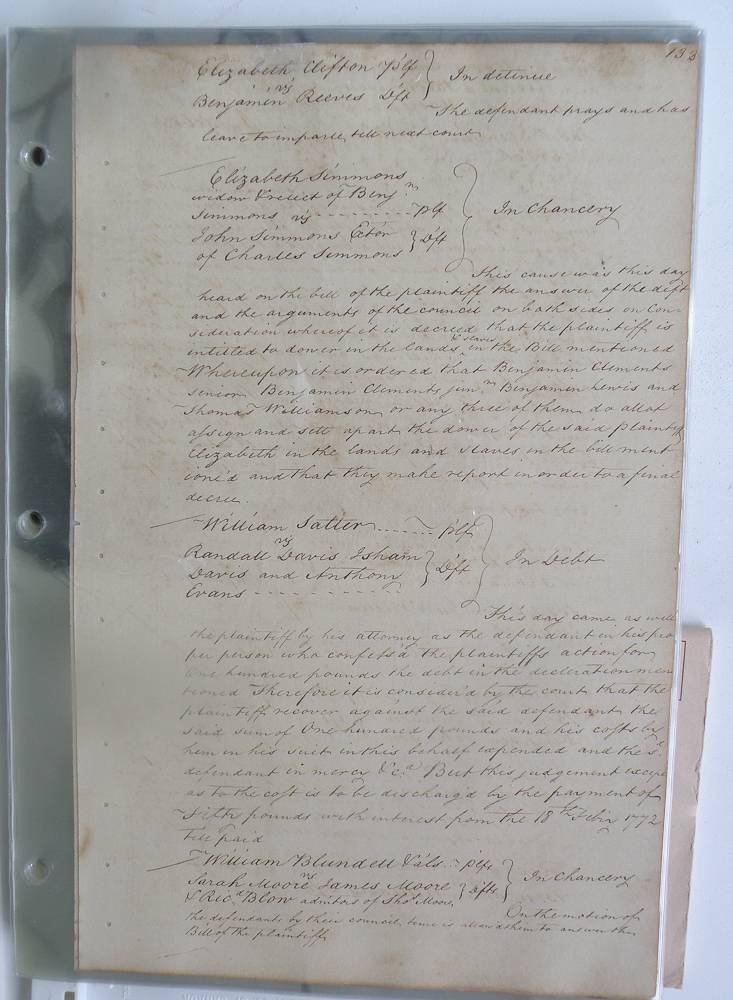 133
Elizabeth Clifton plf } In detinue
vs
Benjamin Reeves Dft
The defendant prays and has
leave to imparle till next court
Elizabeth Simmons
widow & relict of Benjn
Simmons vs - - - - - - - - - plf } In Chancery
John Simmons Ector } Dft
of Charles Simmons
This cause was this day
heard on the bill of the plaintiff the answer of the deft
and the arguments of the council on both sides on Con-
sideration whereof it is decreed that the plaintiff is
intitled to dower in the lands & slaves in the Bill mentioned
Whereupon it is ordered that Benjamin Clements
senior Benjamin Clements junr Benjamin Lewis and
Thomas Williamson or any three of them do allot
assign and sett apart the dower of the said plaintiff
Elizabeth in the lands and slaves in the bill ment
ione'd and that they make report in order to a final
decree.
William Salter - - - - - - plf
vs
Randall Davis Isham } Dft } In Debt
Davis and Anthony
Evans - - - - - - - - - - -
This day came as well
the plaintiff by his attorney as the defendant in his pro
per person who confess'd the plaintiffs action for
One hundred pounds the debt in the decleration men
tioned Therefore it is consider'd by the court that the
plaintiff recover against the said defendant the
said sum of One hundred pounds and his costs by
him in his suit in this behalf expended and the sd
defendant in mercy &c.a But this judgement except
as to the cost is to be discharg'd by the payment of
Fifty pounds with interest from the 18th Febry 1772
till paid
William Blundell & als - plfs
vs
Sarah Moore James Moore } Dfts } In Chancery
& Ricd Blow admitors of Thos Moore
On the motion of
the defendants by their council time is allow'd them to answer the
Bill of the plaintiffs